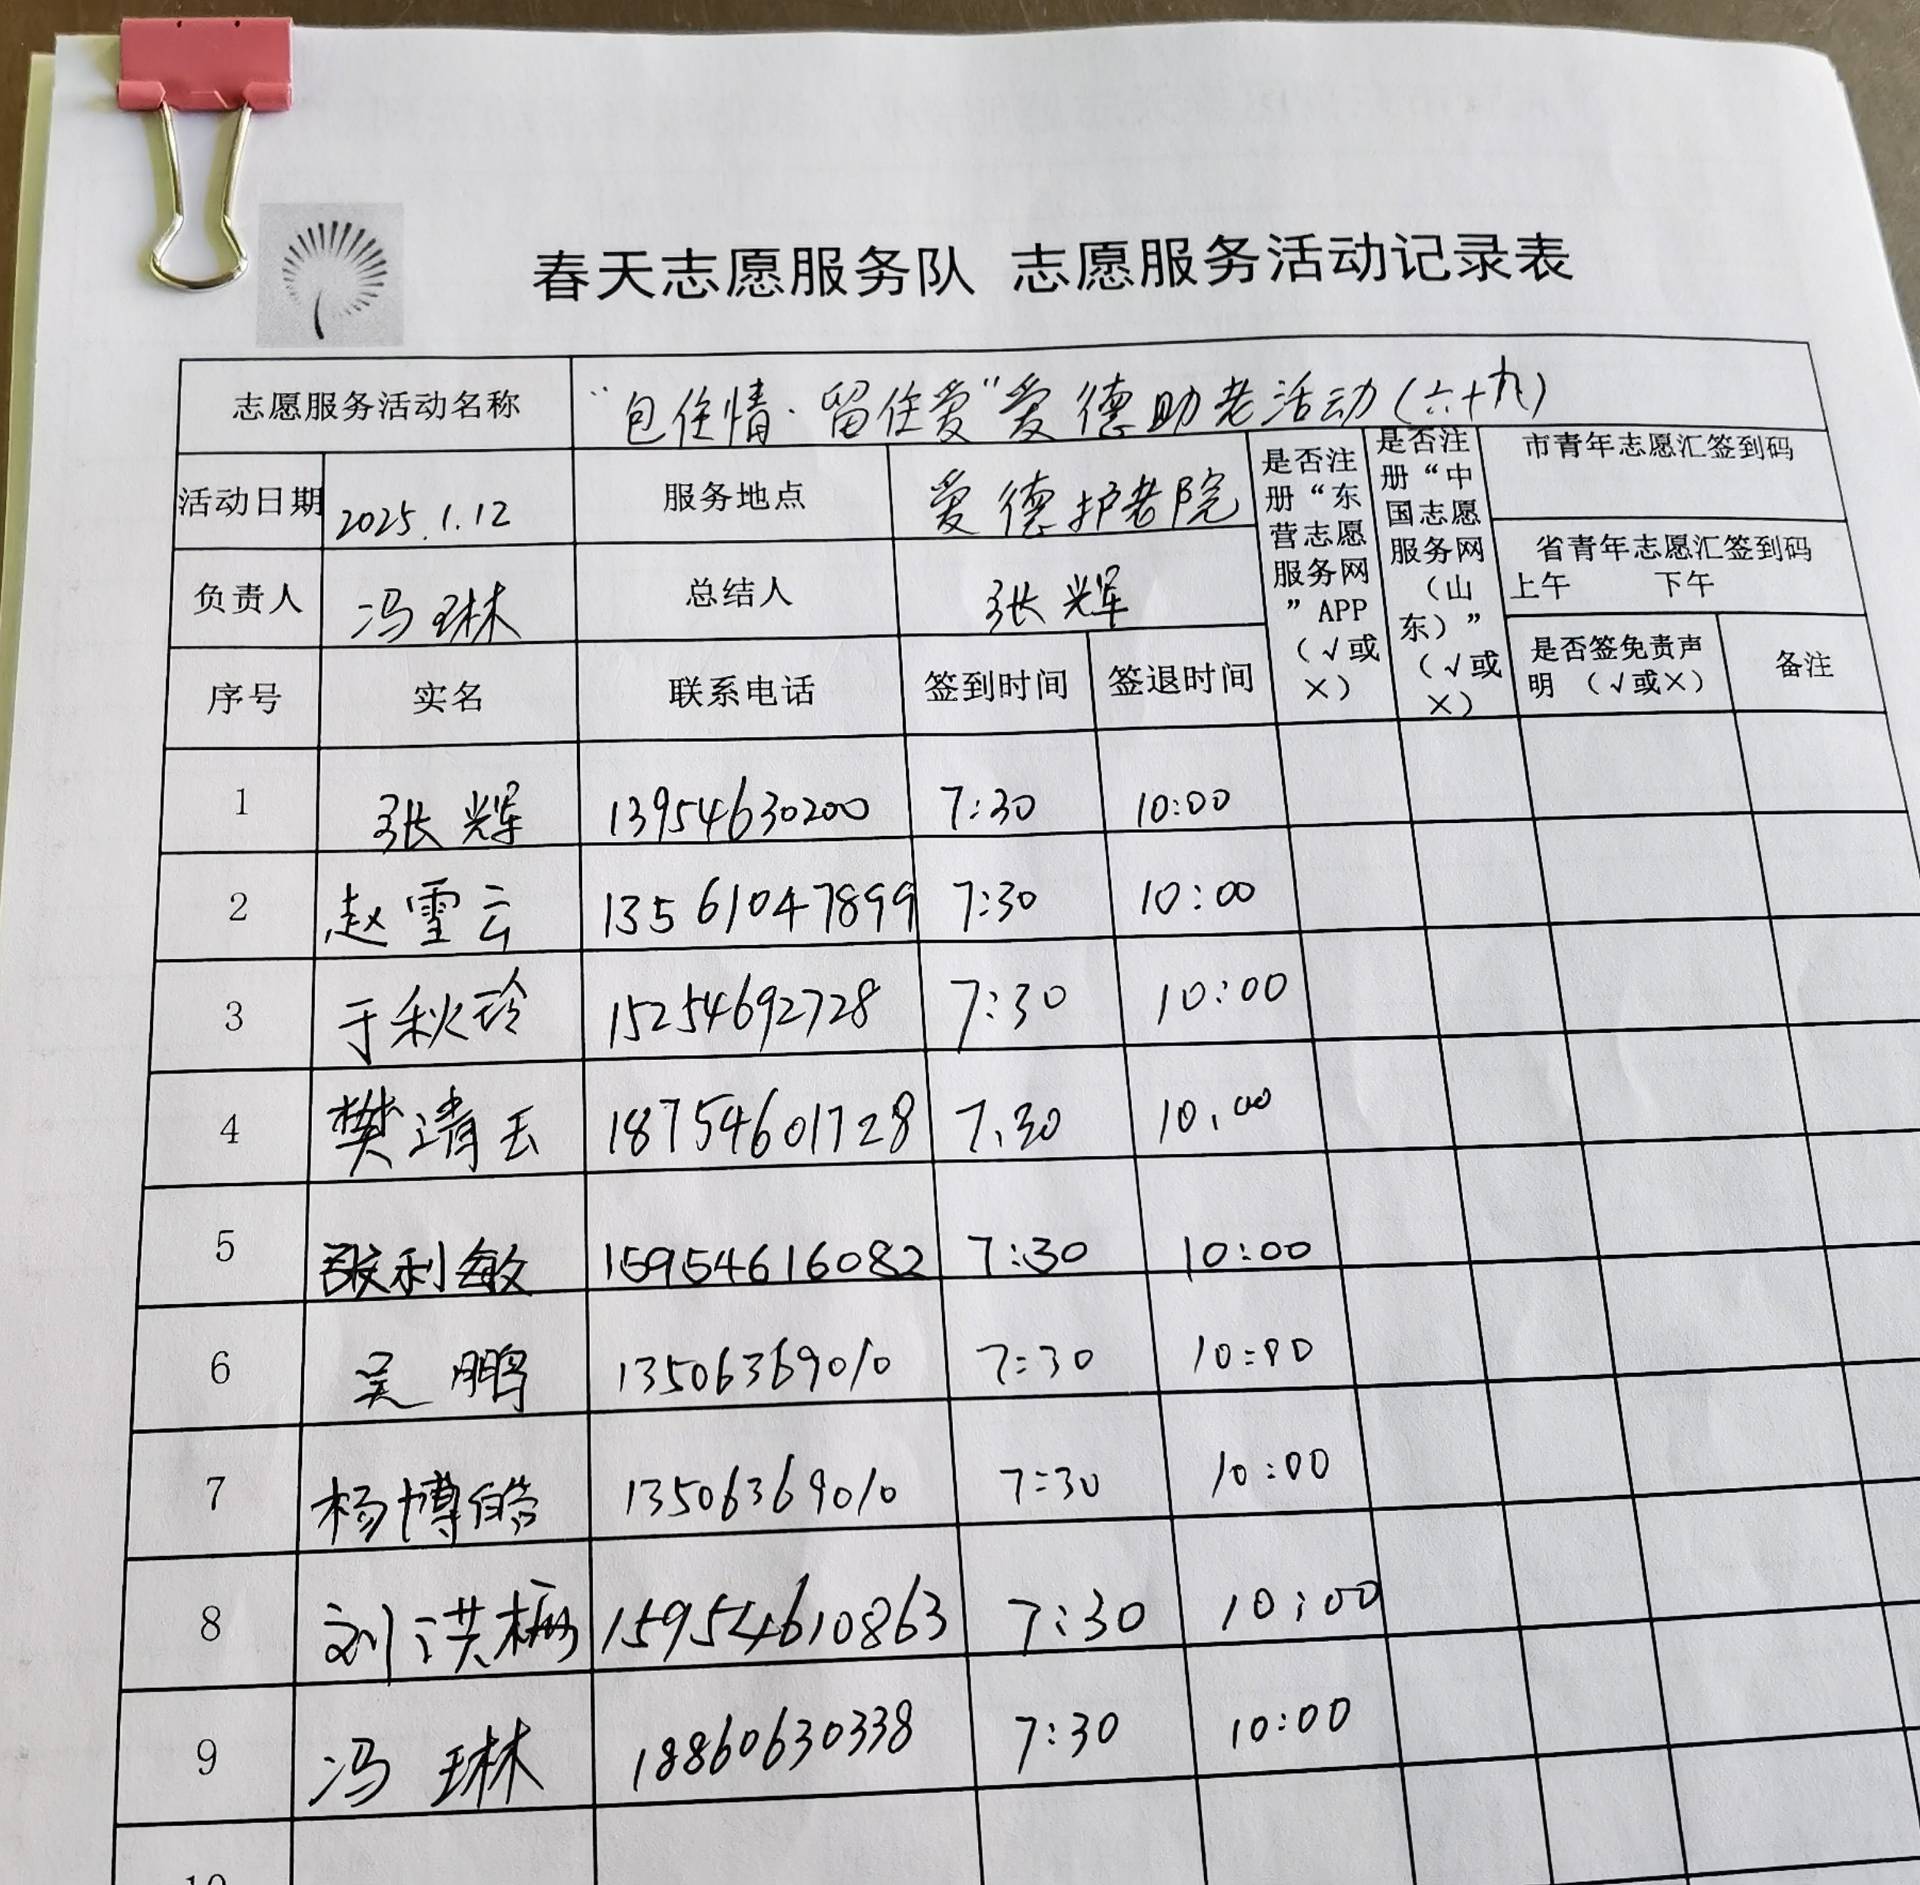 春天志愿服务队 志愿服务活动记录表
志愿服务活动名称 “包住情·留住爱”爱德助老活动(六十九)
活动日期 2025.1.12 服务地点 爱德护老院
是否注册“东营志愿服务网”APP（√或×）
是否注册“中国志愿服务网（山东）”（√或×）
市青年志愿汇签到码
省青年志愿汇签到码
上午 下午
负责人 冯琳 总结人 张辉
序号 实名 联系电话 签到时间 签退时间 是否签免责声明（√或×） 备注
1 张辉 13954630200 7:30 10:00
2 赵雪云 13561047899 7:30 10:00
3 于秋玲 15254692728 7:30 10:00
4 樊清玉 18754601728 7.30 10.00
5 张利敏 15954616082 7:30 10:00
6 吴鹏 13506369010 7:30 10:00
7 杨博皓 13506369010 7:30 10:00
8 刘洪梅 15954610863 7:30 10:00
9 冯琳 18860630338 7:30 10:00
10